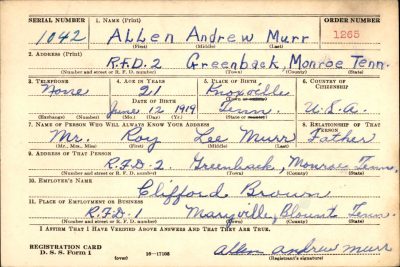 SERIAL NUMBER 1. NAME (Print) ORDER NUMBER
1042 Allen Andrew Murr 1265
(First) (Middle) (Last)
2. ADDRESS (Print)
R.F.D. 2 Greenback, Monroe Tenn.
(Number and street or R. F. D. number) (Town) (County) (State)
3. TELEPHONE 4. AGE IN YEARS 5. PLACE OF BIRTH 6. COUNTRY OF CITIZENSHIP
None 21 Knoxville
DATE OF BIRTH (Town or county)
June 12, 1919 Tenn. U.S.A.
(Exchange) (Number) (Mo.) (Day) (Yr.) (State or country)
7. NAME OF PERSON WHO WILL ALWAYS KNOW YOUR ADDRESS 8. RELATIONSHIP OF THAT PERSON
Mr. Roy Lee Murr Father
(Mr., Mrs., Miss) (First) (Middle) (Last)
9. ADDRESS OF THAT PERSON
R.F.D-2. Greenback, Monroe Tenn.
(Number and street or R. F. D. number) (Town) (County) (State)
10. EMPLOYER'S NAME
Clifford Brown
11. PLACE OF EMPLOYMENT OR BUSINESS
R.F.D-1 Maryville, Blount Tenn.
(Number and street or R. F. D. number) (Town) (County) (State)
I AFFIRM THAT I HAVE VERIFIED ABOVE ANSWERS AND THAT THEY ARE TRUE.
REGISTRATION CARD
D. S. S. Form 1 (over) 16-17105 Allen Andrew Murr
(Registrant's signature)